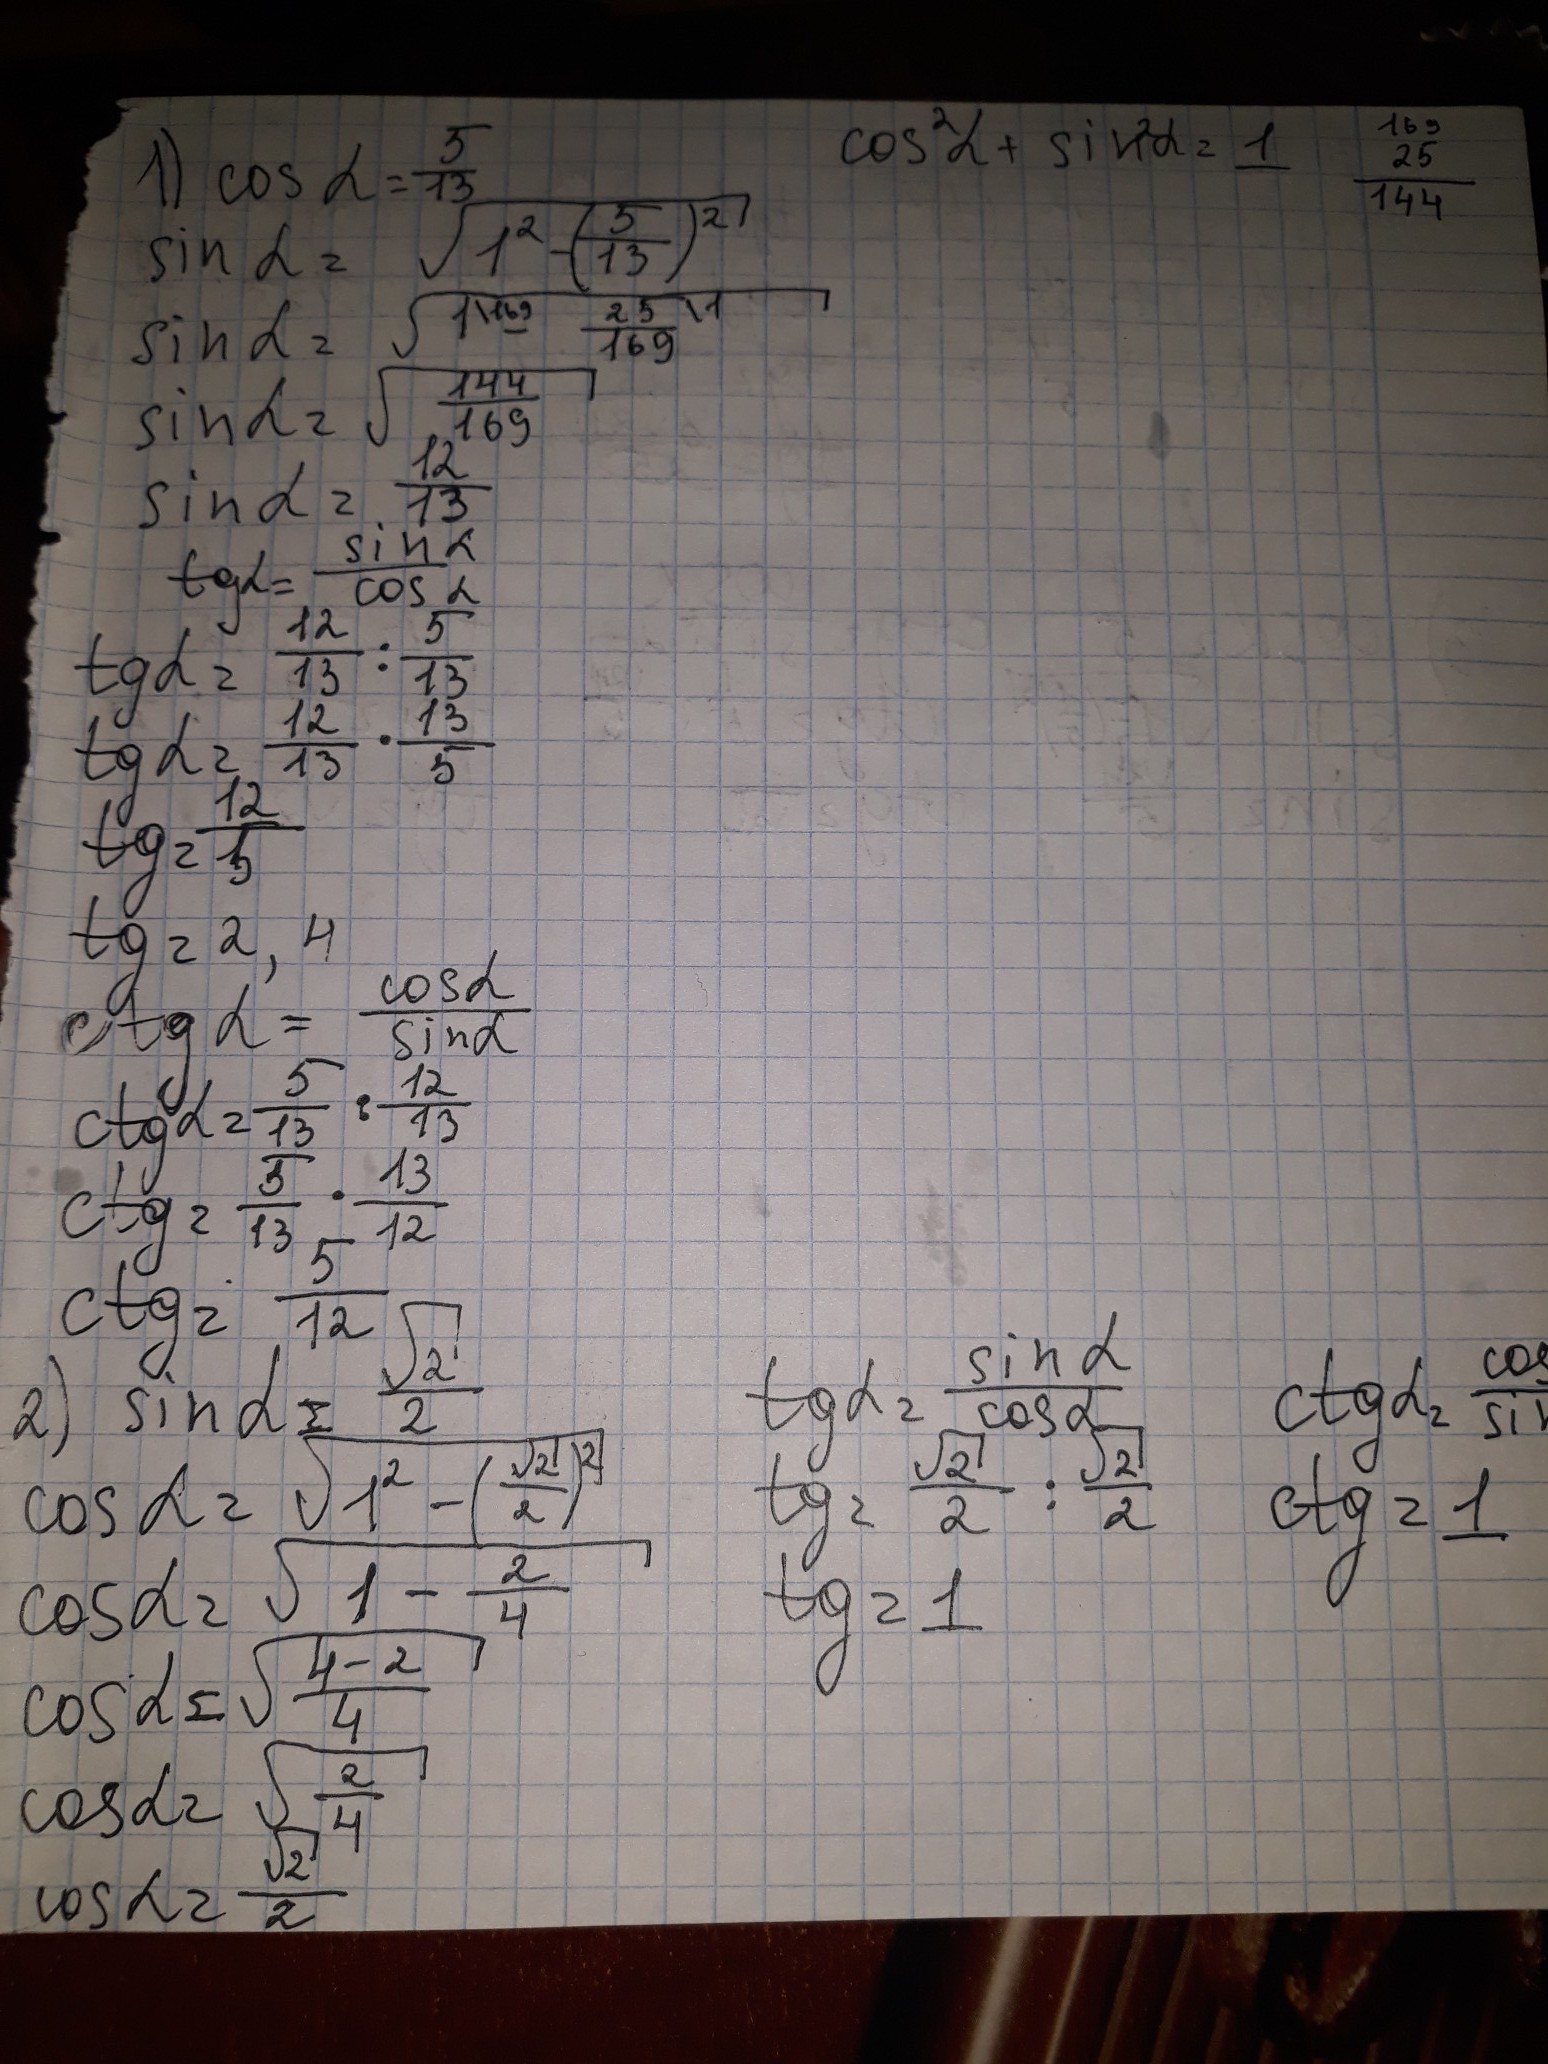 1) cos α = 5/13
cos²α + sin²α = 1
169
25
144
sin α = √(1² - (5/13)²)
sin α = √(1\169 - 25/169\1)
sin α = √(144/169)
sin α = 12/13
tg α = sin α / cos α
tg α = 12/13 : 5/13
tg α = 12/13 · 13/5
tg = 12/5
tg = 2,4
ctg α = cos α / sin α
ctg α = 5/13 : 12/13
ctg = 5/13 · 13/12
ctg = 5/12
2) sin α = √2/2
cos α = √(1² - (√2/2)²)
cos α = √(1 - 2/4)
cos α = √((4-2)/4)
cos α = √(2/4)
cos α = √2/2
tg α = sin α / cos α
tg = √2/2 : √2/2
tg = 1
ctg α = cos / sin
ctg = 1